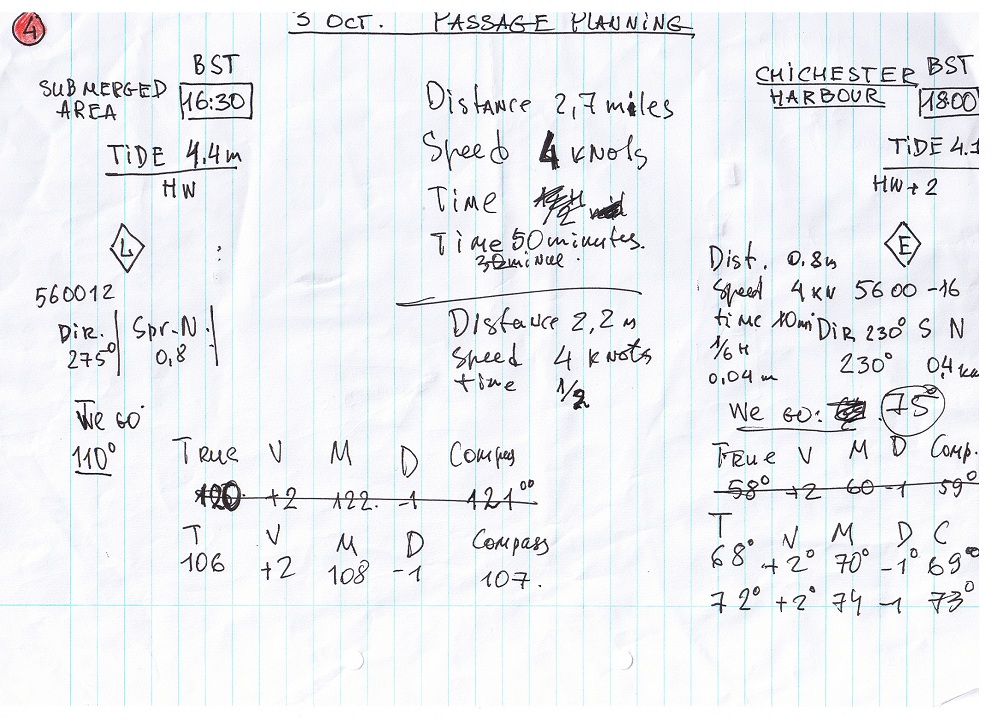 4
3 OCT. PASSAGE PLANNING
SUBMERGED AREA
BST
16:30
TIDE 4,4m
HW
L
560012
Dir. Spr. N.
275° 0,8
We go
110°
Distance 2,7 miles
Speed 4 knots
Time
Time 50 minutes.
Distance 2,2 m
Speed 4 knots
time 1/2
CHICHESTER HARBOUR
BST
18:00
TIDE 4.1
HW + 2
E
Dist. 0.8m
Speed 4 KN 5600-16
time 10 min Dir 230° S N
1/6 H 230° 0,4 kn
0,04 m
We go: 75°
True V M D Compas
120 +2 122. -1 121°
T V M D Compass
106 +2 108 -1 107.
True V M D Comp.
58° +2 60 -1 59°
T V M D C
68° +2° 70° -1° 69°
72° +2° 74 -1 73°